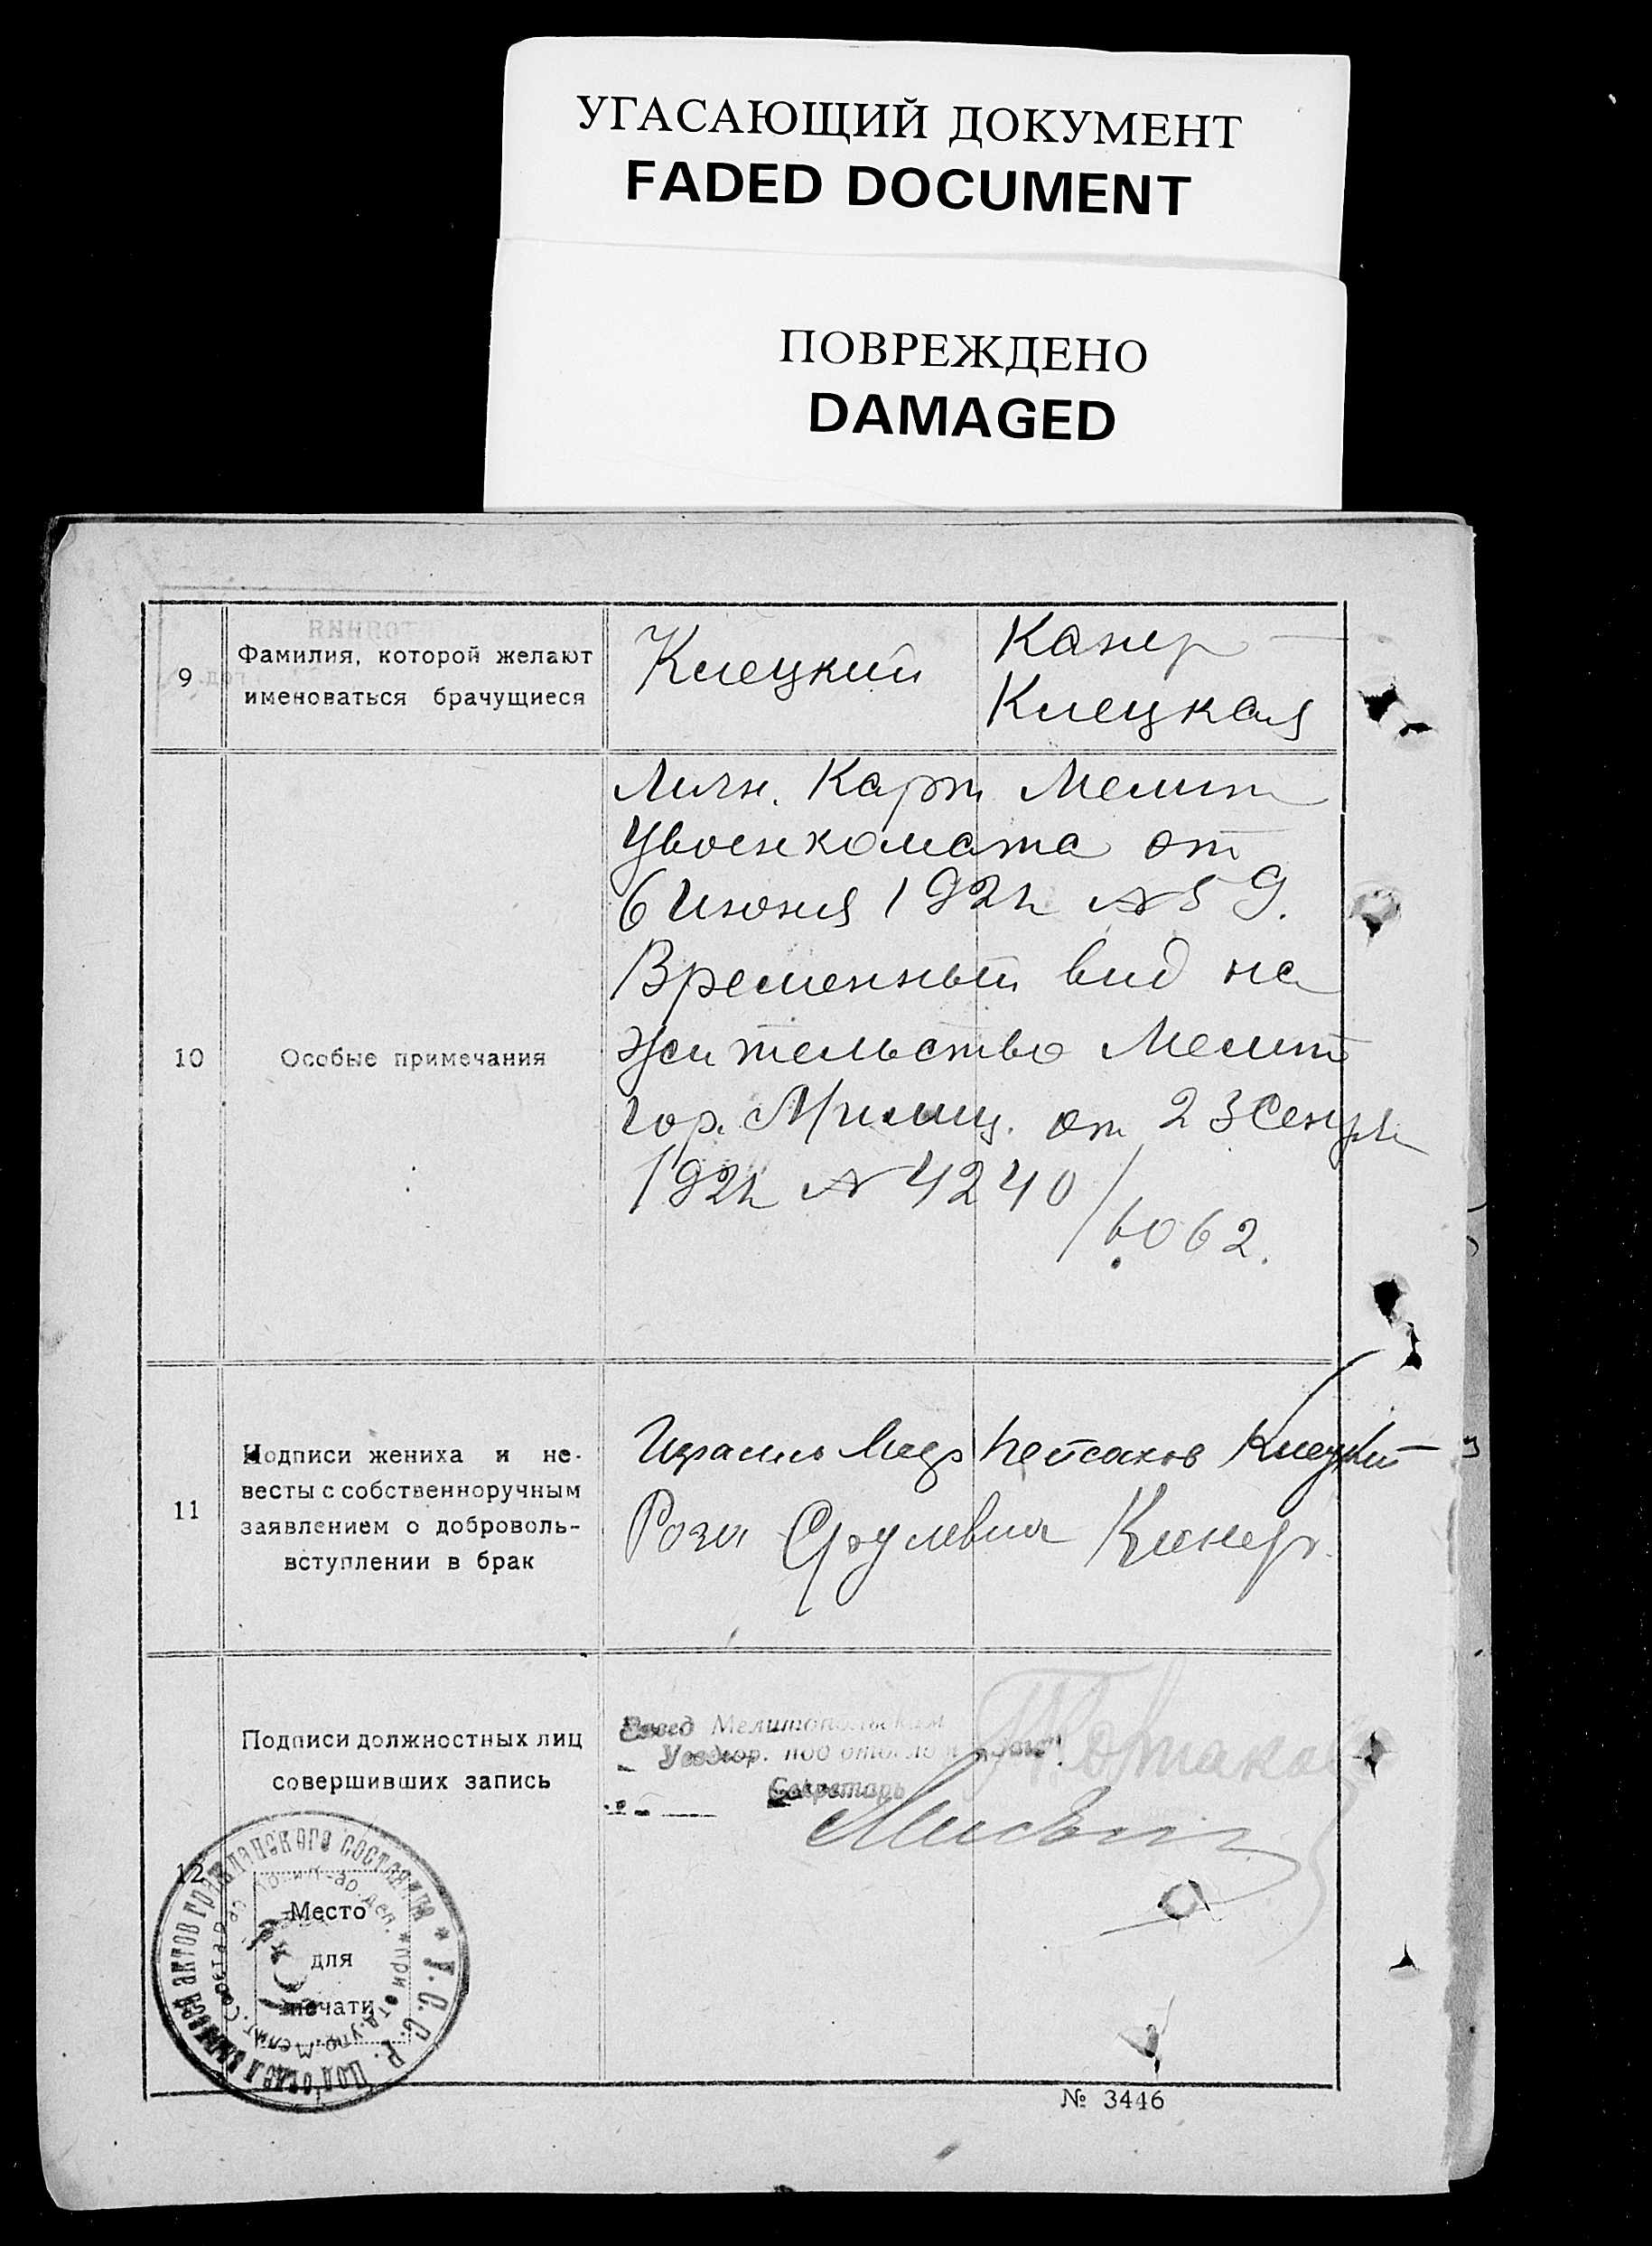 УГАСАЮЩИЙ ДОКУМЕНТ
FADED DOCUMENT
ПОВРЕЖДЕНО
DAMAGED
9
Фамилия, которой желают
именоваться брачущиеся
Клецкий
Канер
Клецкая
10
Особые примечания
Личн. Карт Мелит
Увоенкомата от
6 июня 192 г № 59.
Временный вид на
жительство Мелит
гор. Милиц. от 23 Сентр
192 г № 4240/6062.
11
Подписи жениха и не-
весты с собственноручным
заявлением о доброволь-
вступлении в брак
Израиль Пейсахов Клецкий
Роза Срулевна Канер
12
Подписи должностных лиц
совершивших запись
Завед Мелитопольским
Уездгор. подотделом
Секретарь
Место
для
печати
У. С. С. Р. Подотдел записи актов гражданского состояния
№ 3446